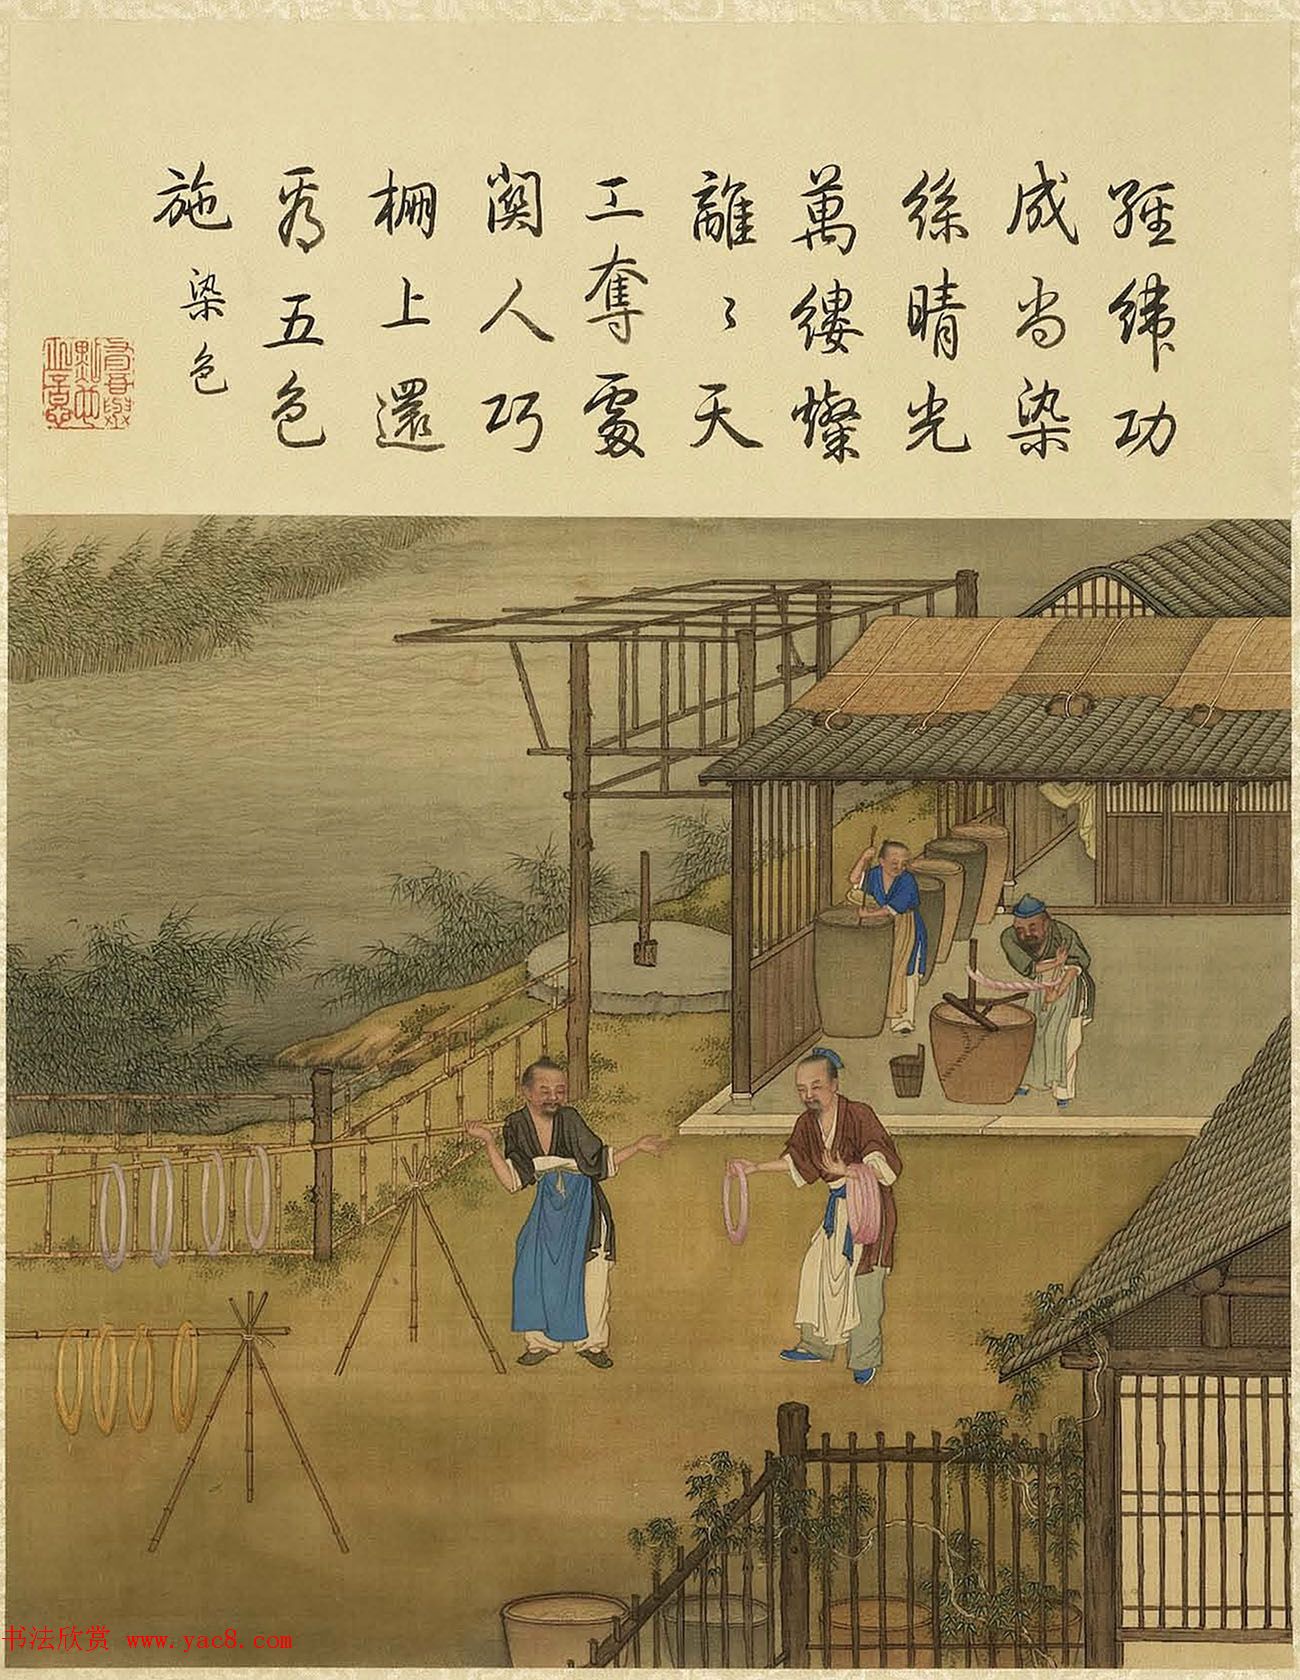 經緯功
成尚染
絲晴光
萬縷燦
離〻天
工奪處
關人巧
柵上還
看五色
施
染色
书法欣赏 www.yac8.com